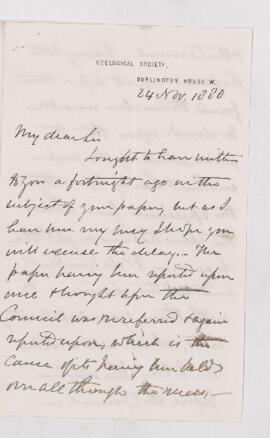 GEOLOGICAL SOCIETY,
BURLINGTON HOUSE. W.
24 Nov. 1880
My dear Sir
I ought to have written
to you a fortnight ago on the
subject of your paper, but as I
have been very busy I hope you
will excuse the delay. The
paper having been reported upon
once & brought upon the
Council was re-referred & again
reported upon, which is the
cause of its having been held
over all through the recess —